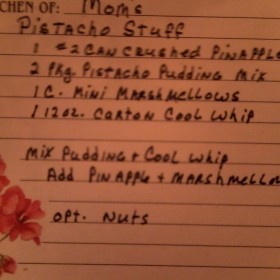 CHEN OF: Mom's
Pistacho Stuff
1 #2 Can Crushed Pinapple
2 Pkg. Pistacho Pudding Mix
1 C. Mini Marshmellows
1 12oz. Carton Cool Whip
Mix Pudding + Cool Whip
Add Pinapple + Marshmello
opt. Nuts